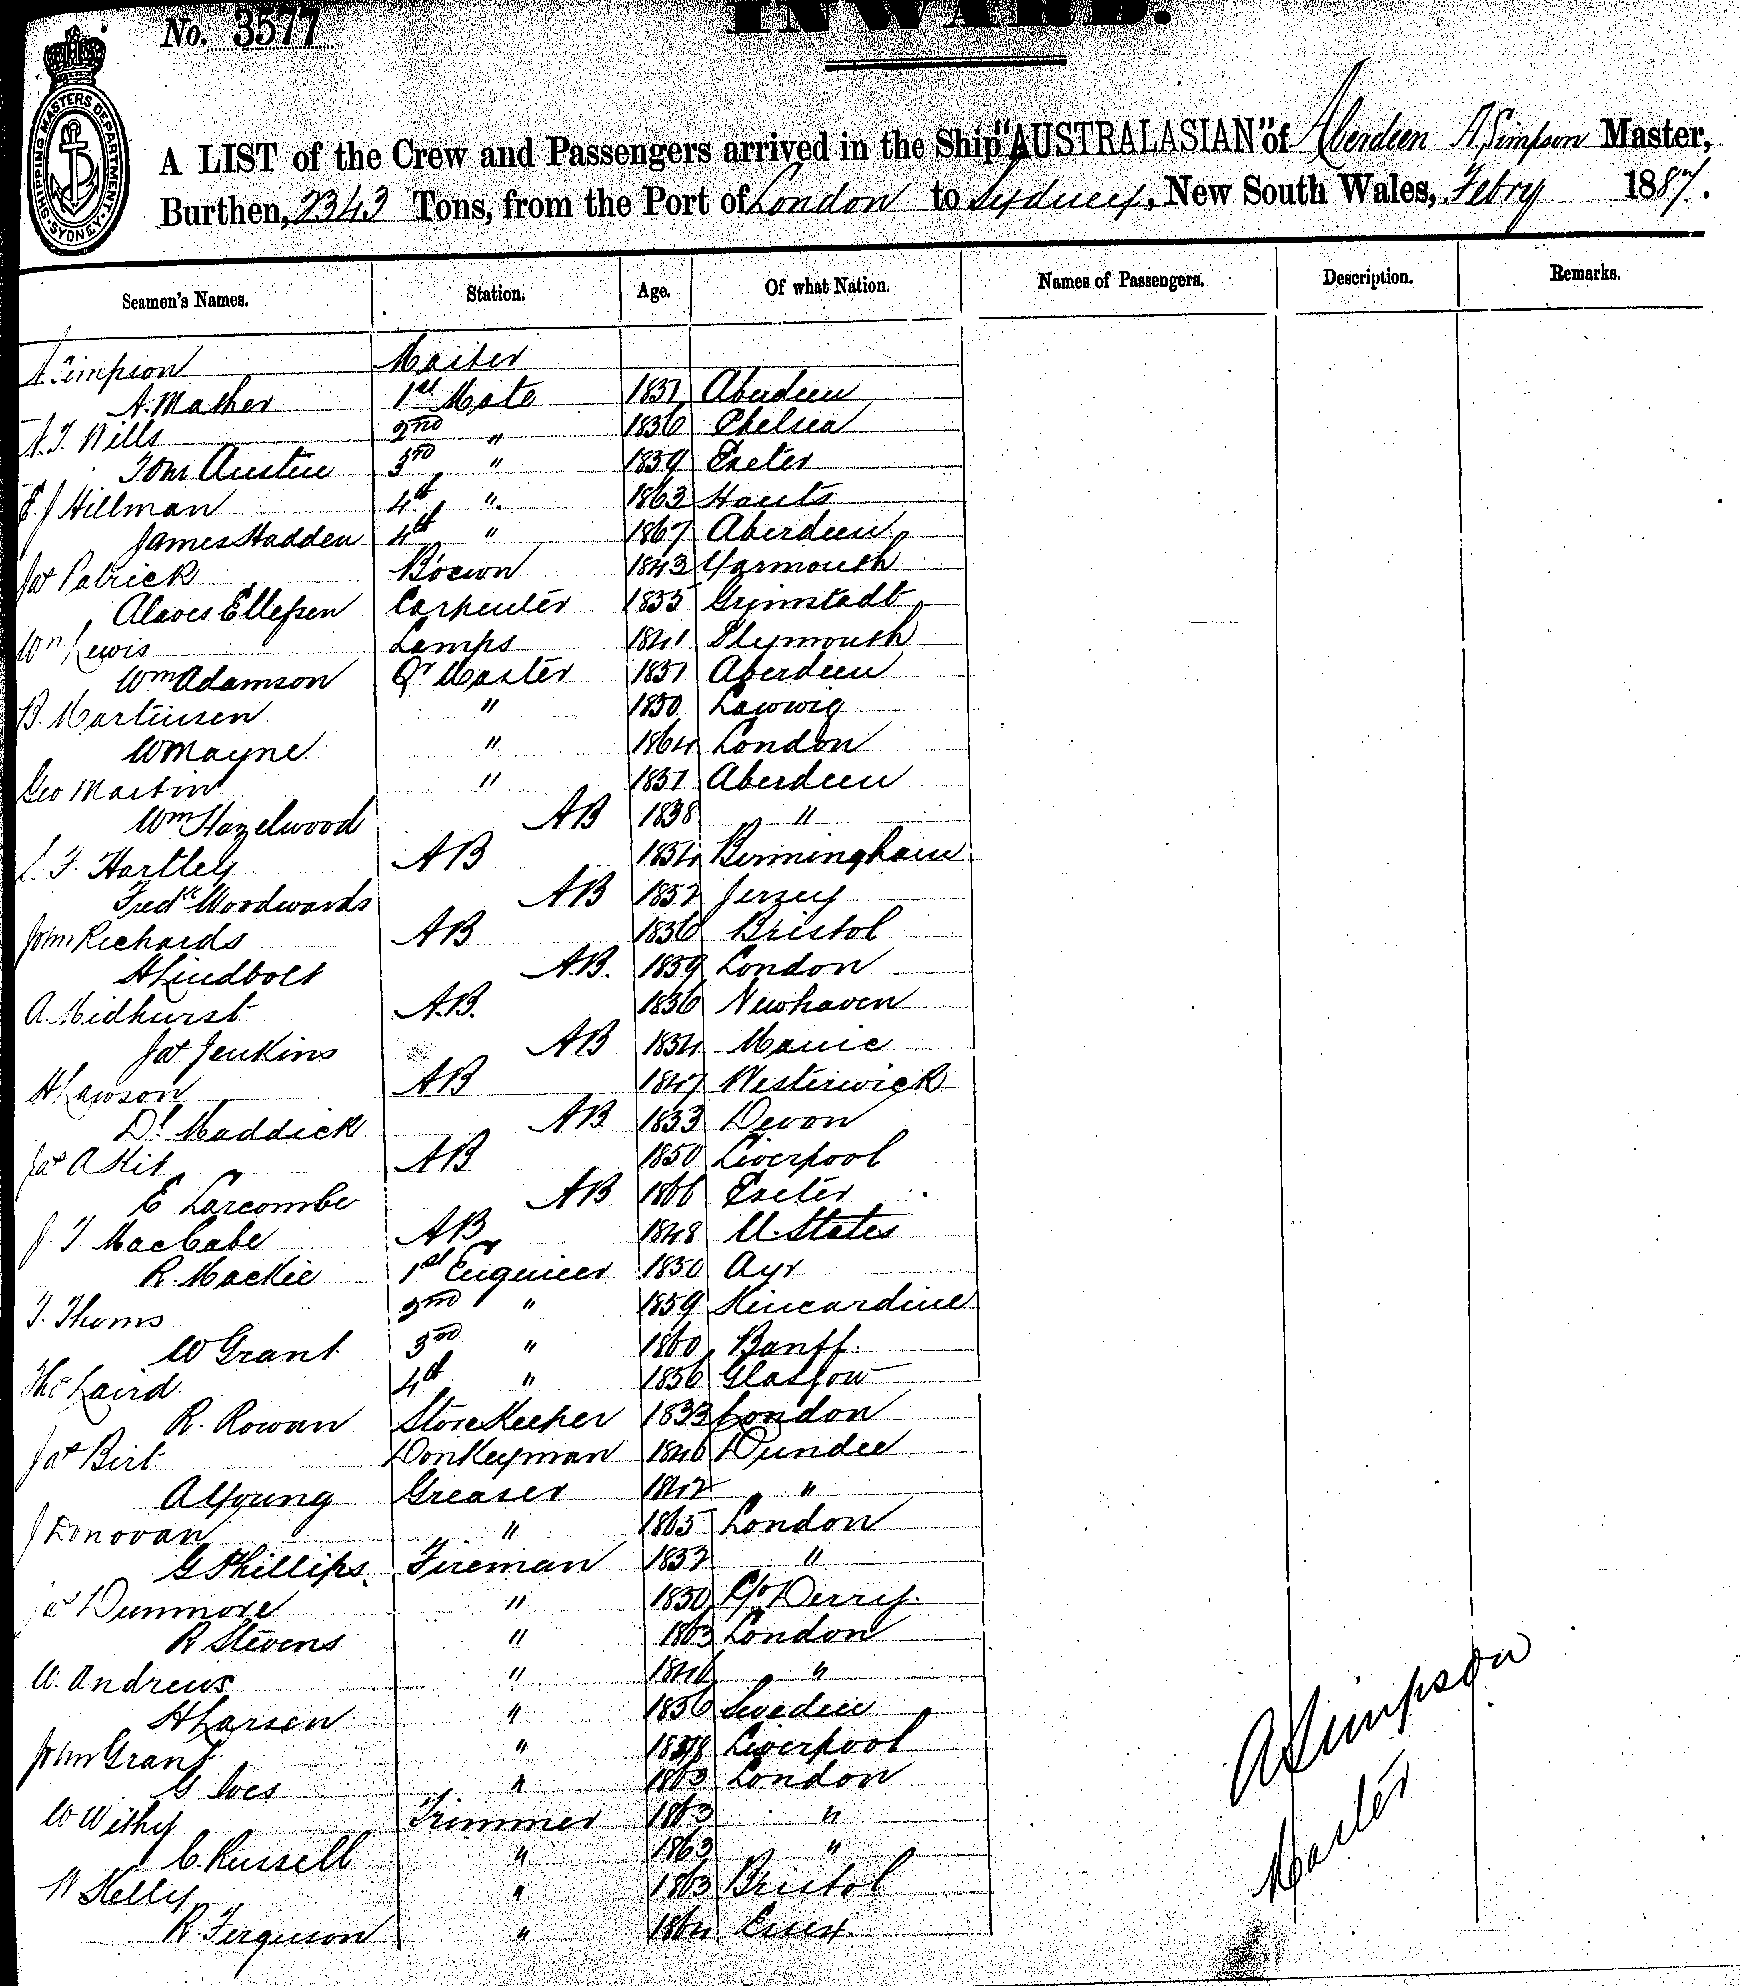 INWARD.
No. 3577
SHIPPING MASTERS DEPARTMENT SYDNEY
A LIST of the Crew and Passengers arrived in the Ship "AUSTRALASIAN" of Aberdeen A Simpson Master,
Burthen, 2343 Tons, from the Port of London to Sydney, New South Wales, Febry 1887.
Seamen's Names. Station. Age. Of what Nation. Names of Passengers. Description. Remarks.
A Simpson Master
A. Mather 1st Mate 1851 Aberdeen
A. T. Wills 2nd " 1836 Chelsea
Tom Austin 3rd " 1859 Exeter
E J Hillman 4th " 1863 Hants
James Hadden 4th " 1867 Aberdeen
Jas Patrick Bosun 1843 Yarmouth
Ellefsen Carpenter 1855 Grimstadt
Wm Lewis Lamps 1841 Plymouth
Wm Adamson Qr Master 1851 Aberdeen
B. Martinsen " 1850
W Mayne " 1864 London
Geo Martin " 1851 Aberdeen
Wm Hazelwood AB 1838 "
T. Hartley AB 1854 Birmingham
Fredk Woodwards AB 1852 Jerzey
John Richards AB 1836 Bristol
H Lindbolt AB. 1859 London
A. Midhurst A.B. 1836 Newhaven
Jas Jenkins AB 1854
H Lawson AB 1847 Westerwick
Dl Maddick AB 1853 Devon
Jas A Kit AB 1850 Liverpool
E Larcombe AB 1866 Exeter
J. T MacCabe AB 1848 U. States
R. Mackie 1st Engineer 1850 Ayr
T. Thoms 2nd " 1859 Kincardine
W Grant 3rd " 1860 Banff
Laird 4th " 1856 Glasgow
R. Rowan StoreKeeper 1833 London
Jas Birt Donkeyman 1846 Dundee
A Young Greaser 1842 "
J Donovan " 1865 London
G Phillips Fireman 1852 "
Jas Dunmore " 1850 Derry.
R Stevens " 1863 London
W. Andrews " 1846 "
H Larsen " 1856 Sweden
John Grant " Liverpool
G Ives " 1863 London
W Withy Trimmer 1863 "
C. Russell " 1863 "
W Kelly " 1863 Bristol
R. Ferguson " 1864 Essex.
A Simpson
Master